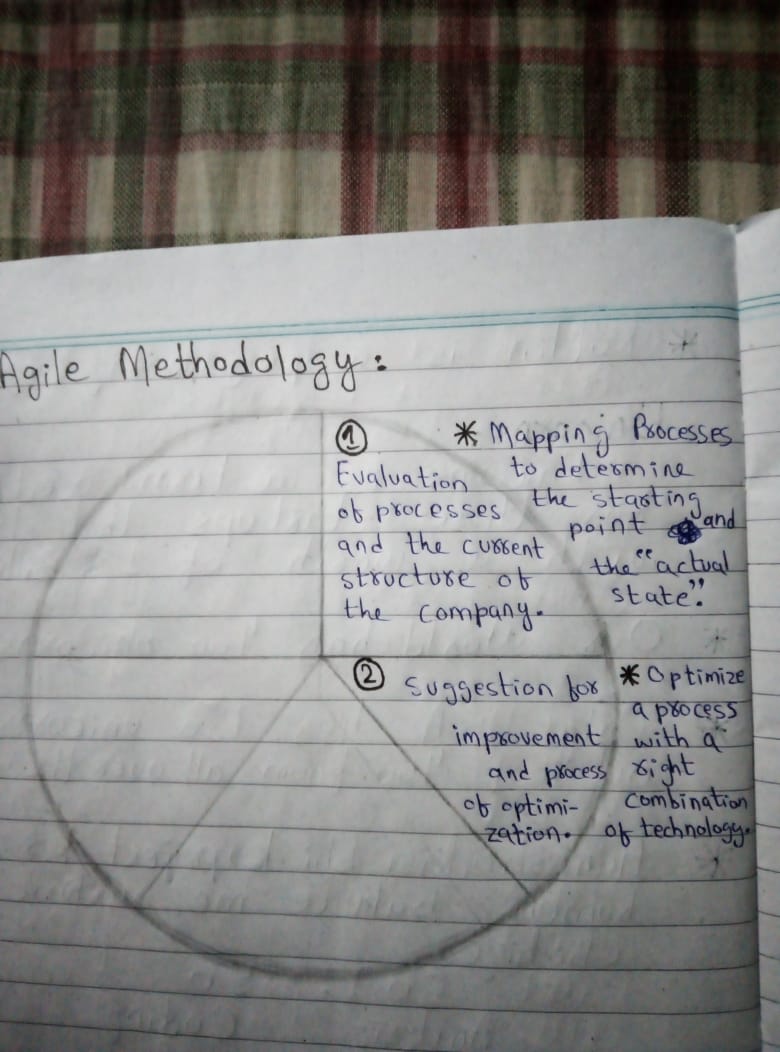 Agile Methodology:
①
Evaluation
of processes
and the current
structure of
the company.
* Mapping Processes
to determine
the starting
point and
the "actual
state".
②
Suggestion for
improvement
and process
of optimi-
zation.
* Optimize
a process
with a
right
combination
of technology.